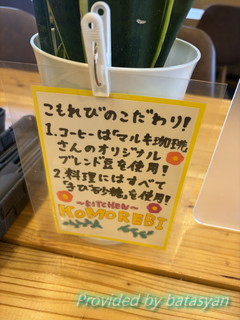 こもれびのこだわり!
1.コーヒーは「マルキ珈琲
さんのオリジナル
ブレンド豆を使用!
2.料理にはすべて
「きび砂糖」を使用!
~KITCHEN~
KOMOREBI
Provided by batasyan